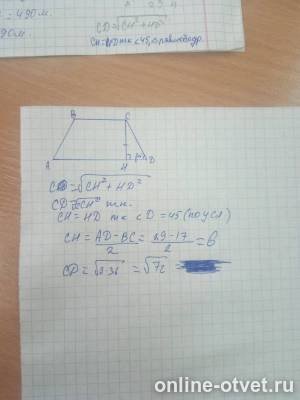 = 490 м.
CD=√CH²+HD²
90м.
CH=HD тк <45,
B C
A H D
CD=√CH²+HD²
CD=√2CH² т.к.
CH=HD тк <D=45 (по усл)
CH=AD-BC/2=29-17/2=6
CD=√2·36 =√72 =
online-otvet.ru